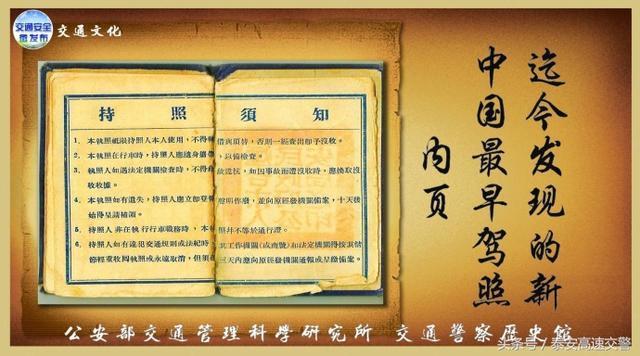 交通安全
微发布
交通文化
持照須知
1. 本執照祇限持照人本人使用，不得 借與頂替，否則一經查出即予沒收。
2. 本執照在行車時，持照人應隨身攜 ，以備檢查。
3. 持照人如遇法定機關檢查時，不得 故違抗，如因事故而遭沒收時，應換取沒
收收據。
4. 本執照如有遺失，持照人應立即登 聲明作廢，並向原經發機關備案，十天後
始得呈請補領。
5. 持照人非在執行行車職務時，本執 照幷不等於通行證。
6. 持照人如有違犯交通規則或法紀時， 其工作機關(或商號)和法定機關得按其情
節輕重收囘執照或永遠取消，但須在 三天內應向原經發機關通報或呈繳備案。
迄今发现的新
中国最早驾照
内页
公安部交通管理科學研究所 交通警察歷史館
头条号 / 泰安高速交警